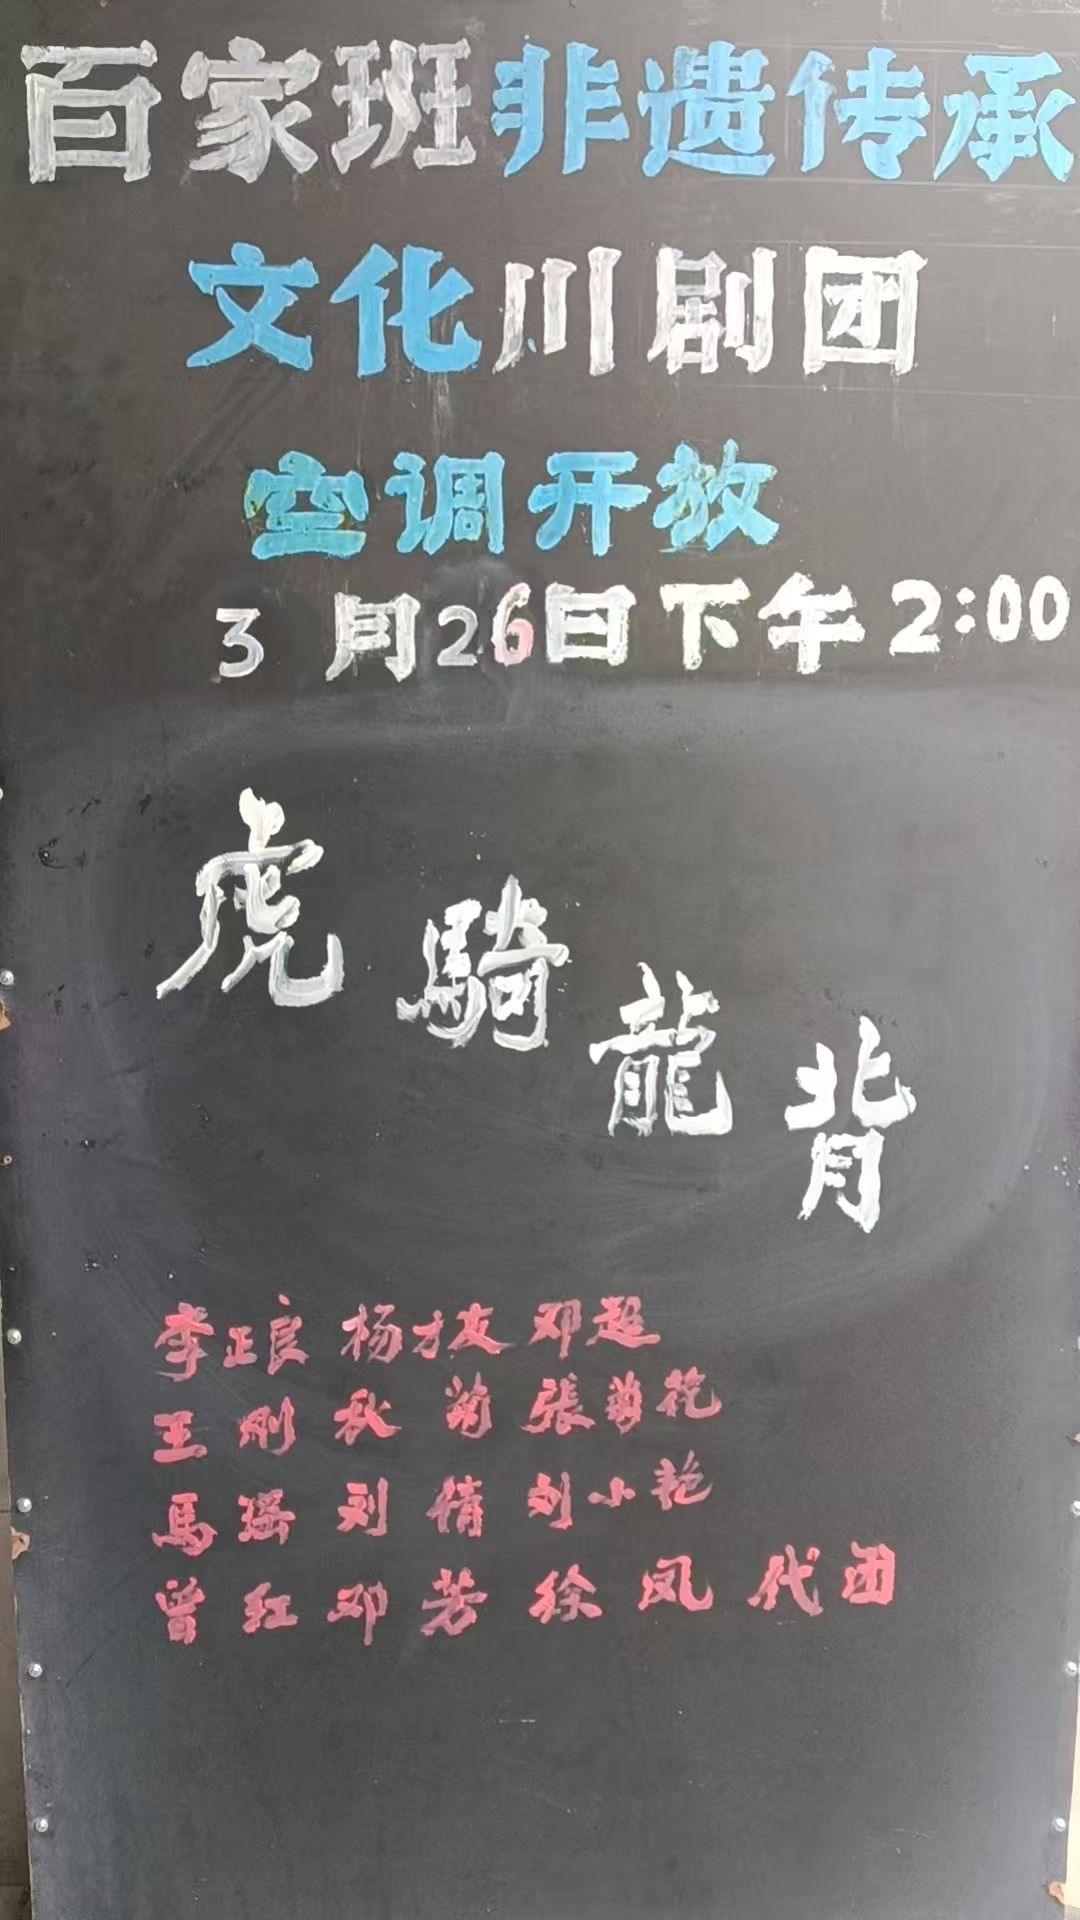 百家班非遗传承
文化川剧团
空调开放
3月26日下午2:00
虎騎龍背
李正良 杨才友 邓超
王刚 秋菊 張菊花
馬瑶 刘倩 刘小艳
曾红 邓芳 徐凤 代团